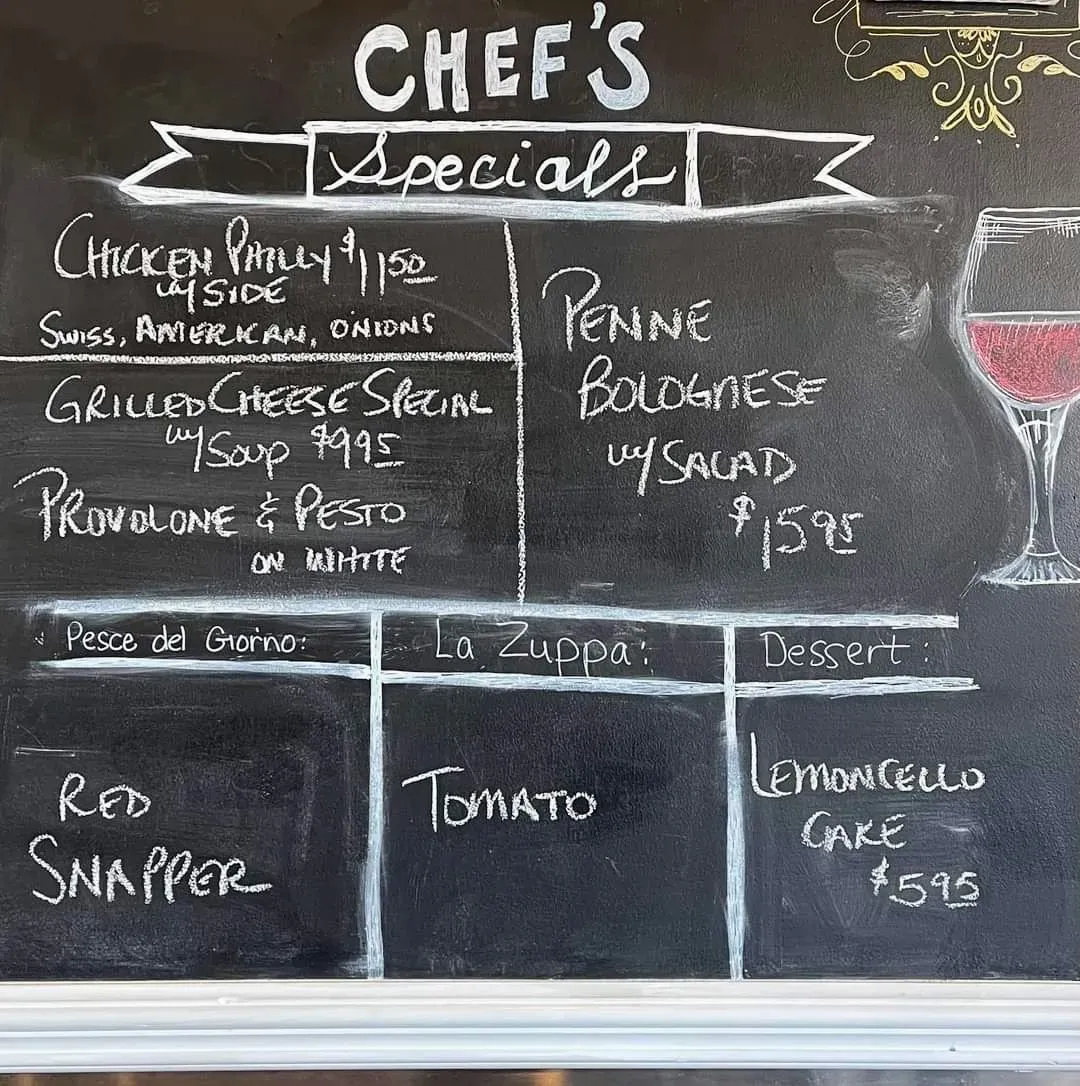 CHEF'S
Specials
CHICKEN PHILLY $1150
w/ SIDE
SWISS, AMERICAN, ONIONS
GRILLED CHEESE SPECIAL
w/ SOUP $995
PROVOLONE & PESTO
ON WHITE
PENNE
BOLOGNESE
w/ SALAD
$1595
Pesce del Giorno:
RED
SNAPPER
La Zuppa:
TOMATO
Dessert:
LEMONCELLO
CAKE
$595